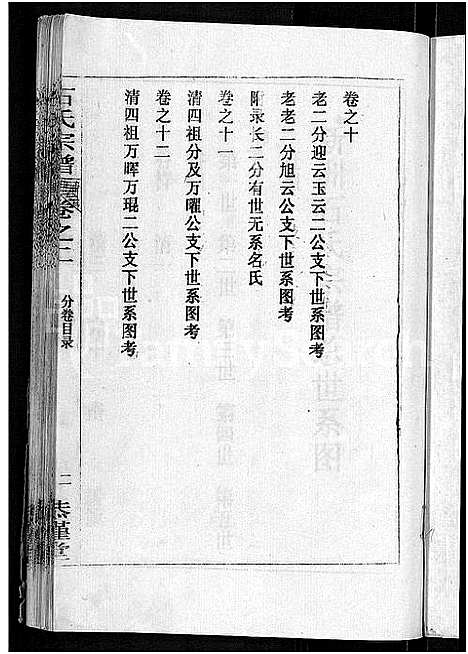 卷之十
老老二分迎云玉云二公支下世系图考
老老二分旭云公支下世系图考
附录长二分有世无系名氏
卷之十一
清四祖分及万曜公支下世系图考
卷之十二
清四祖万晖万琨二公支下世系图考
石氏宗谱 卷之二
分卷目录
二
恭谨堂